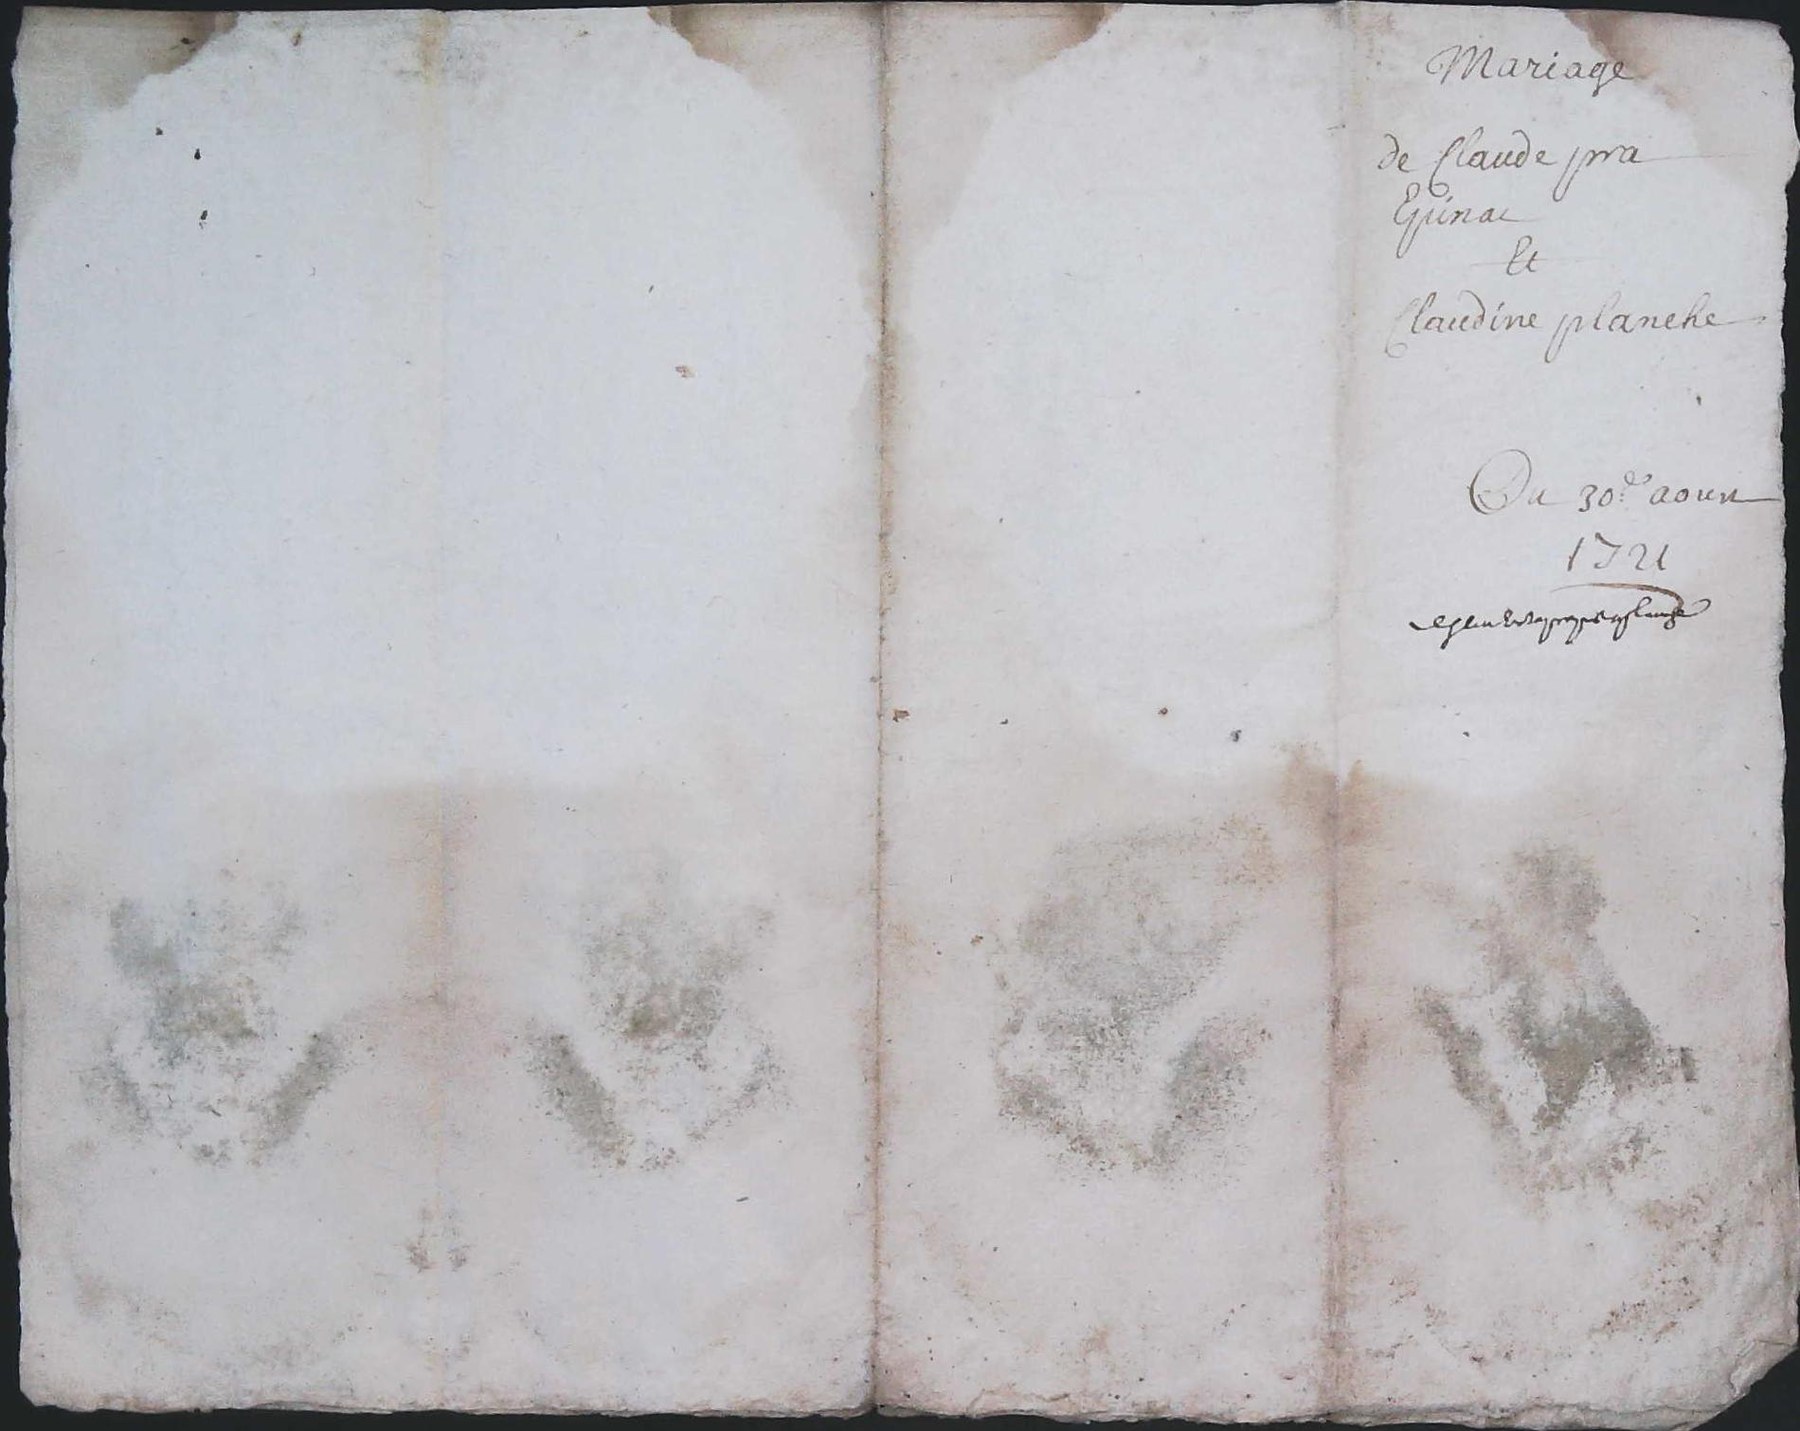 Mariage
de Claude pra
Epinac
Et
Claudine planche
Du 30e aoust
1721